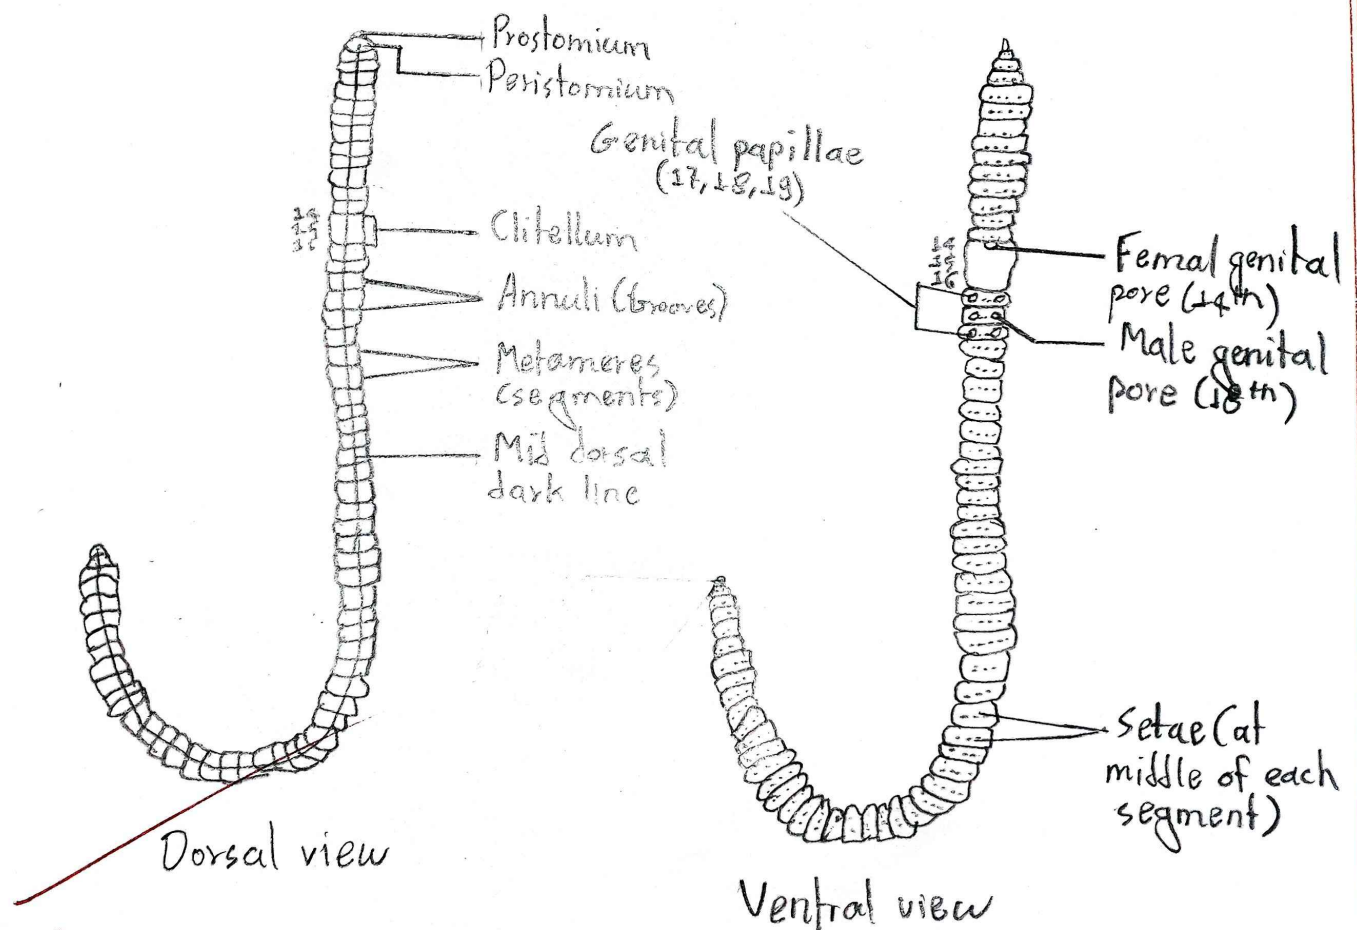 Prostomium
Peristomium
Genital papillae
(17, 18, 19)
14
15
16
Clitellum
Annuli (Grooves)
Metameres
(segments)
Mid dorsal
dark line
Dorsal view
14
15
16
Femal genital
pore (14th)
Male genital
pore (18th)
Setae (at
middle of each
segment)
Ventral view